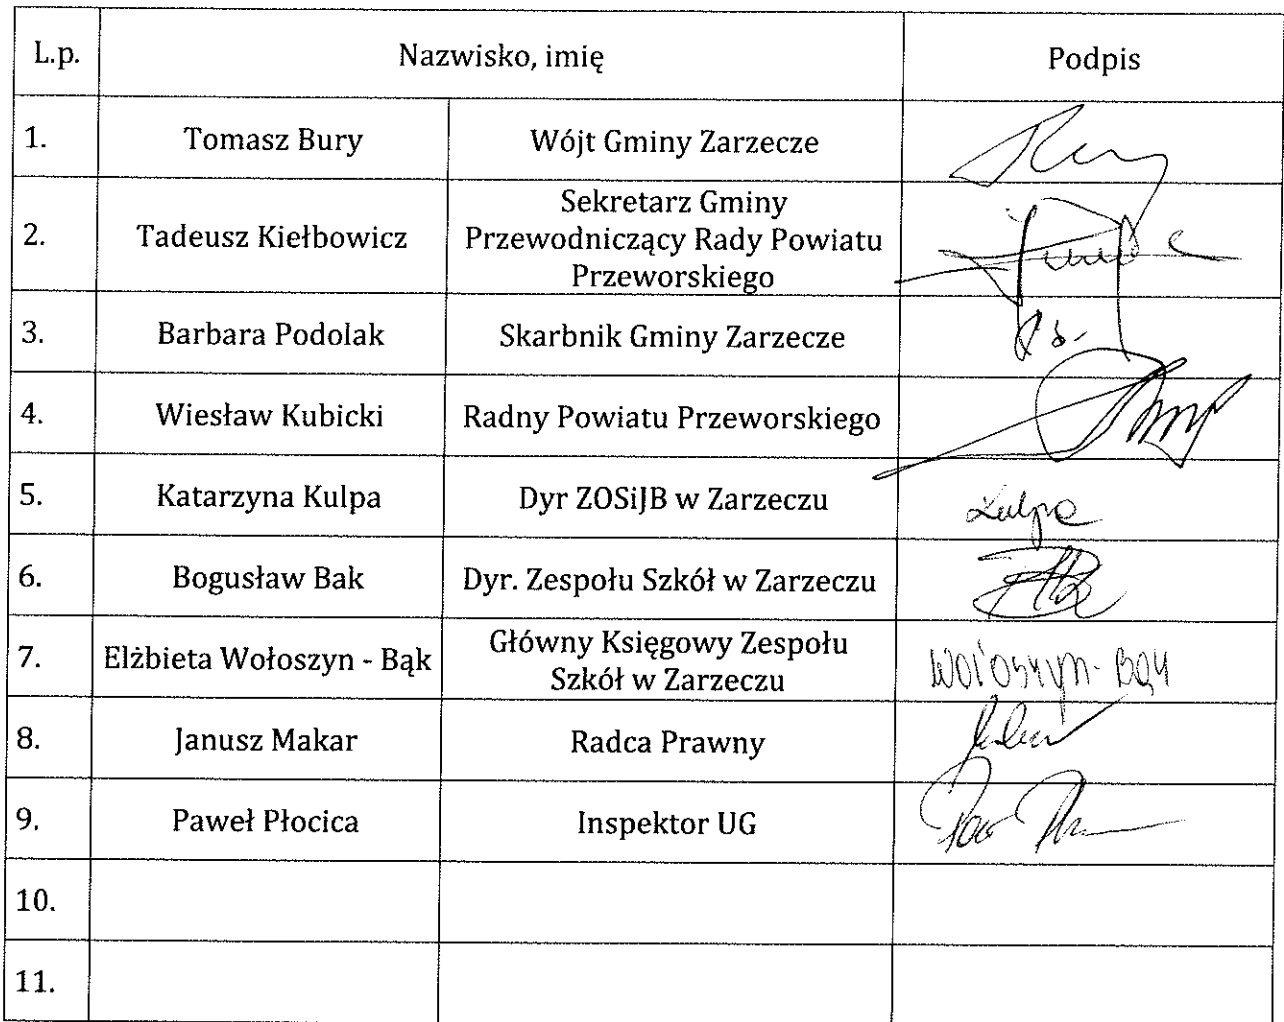 L.p. Nazwisko, imię Podpis
1. Tomasz Bury Wójt Gminy Zarzecze
2. Tadeusz Kiełbowicz Sekretarz Gminy
Przewodniczący Rady Powiatu
Przeworskiego
3. Barbara Podolak Skarbnik Gminy Zarzecze
4. Wiesław Kubicki Radny Powiatu Przeworskiego
5. Katarzyna Kulpa Dyr ZOSiJB w Zarzeczu Kulpa
6. Bogusław Bak Dyr. Zespołu Szkół w Zarzeczu
7. Elżbieta Wołoszyn - Bąk Główny Księgowy Zespołu
Szkół w Zarzeczu Wołoszyn-Bąk
8. Janusz Makar Radca Prawny
9. Paweł Płocica Inspektor UG
10.
11.